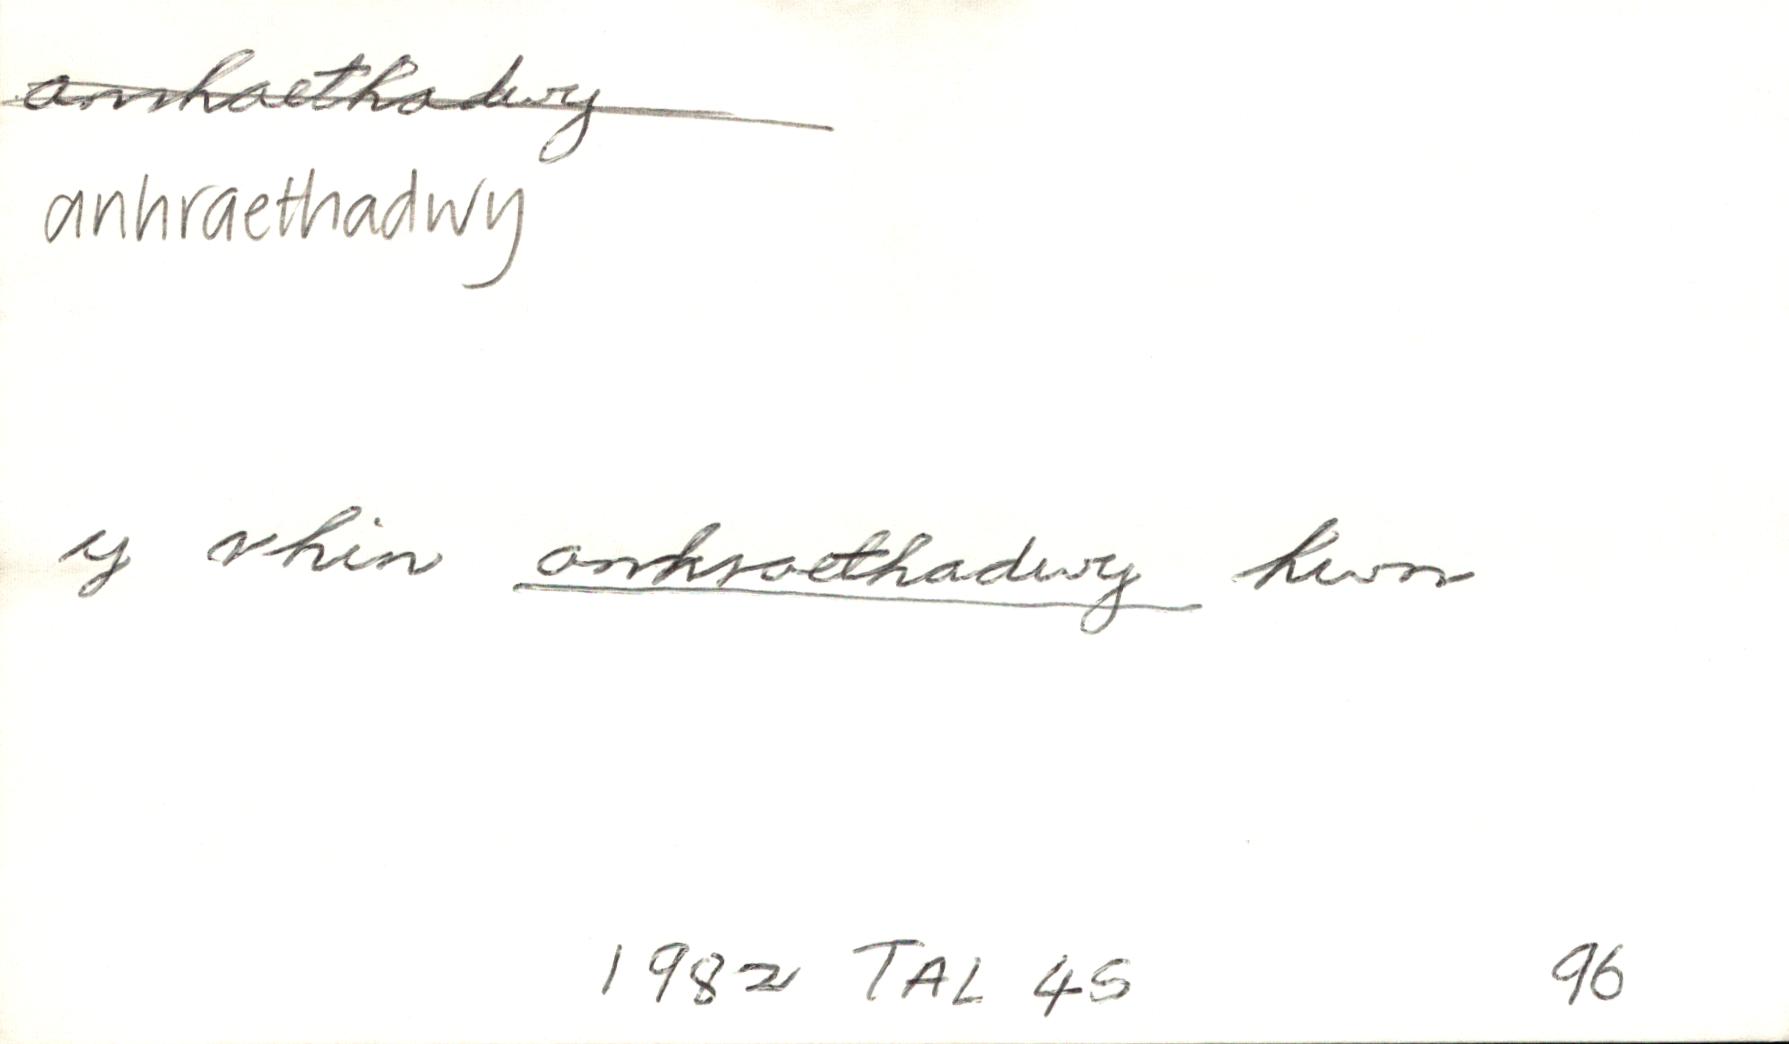 anrhaethadwy
anhraethadwy
y rhin anhraethadwy hwn
1982 TAL 45 96